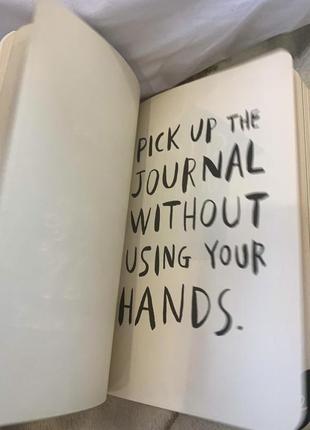 PICK UP THE
JOURNAL
WITHOUT
USING YOUR
HANDS.